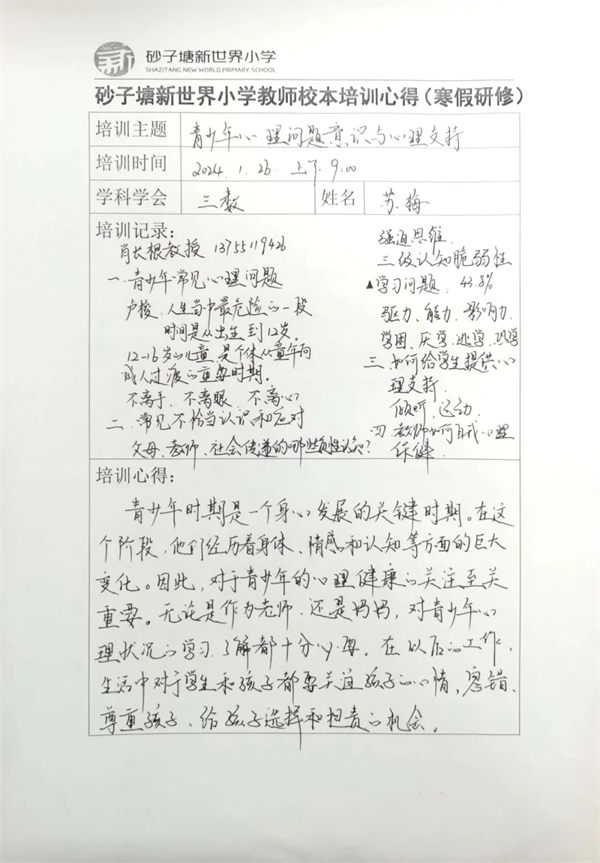 砂子塘新世界小学
SHAZITANG NEW WORLD PRIMARY SCHOOL
砂子塘新世界小学教师校本培训心得（寒假研修）
培训主题 青少年心理问题意识与心理支持
培训时间 2024.1.26. 上午9:00
学科学会 三数 姓名 苏梅
培训记录：
肖长根教授 13755119426
一、青少年常见心理问题
卢梭：人生当中最危险的一段
时间是从出生到12岁。
12-16岁的儿童是个体从童年向
成人过渡的重要时期。
不离手、不离眼、不离心
二、常见不恰当认识和应对
父母、教师、社会传递的哪些负性认知？
强迫思维
三级认知脆弱性
▲学习问题 43.8%
驱力、能力、影响力
学困、厌学、逃学、
三、如何给学生提供心
理支持.
倾听、运动.
四、教师如何自我心理
保健.
培训心得：
青少年时期是一个身心发展的关键时期。在这
个阶段，他们经历着身体、情感和认知等方面的巨大
变化。因此，对于青少年的心理健康的关注至关
重要。无论是作为老师，还是妈妈，对青少年心
理状况的学习、了解都十分必要。在以后的工作、
生活中对于学生和孩子都要关注孩子的心情，容错、
尊重孩子、给孩子选择和担责的机会。